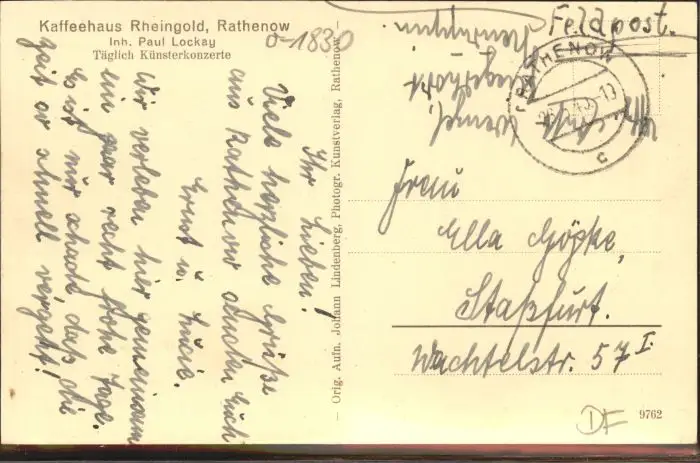 Kaffeehaus Rheingold, Rathenow
Inh. Paul Lockay
Täglich Künsterkonzerte
o-1830
Ihr Lieben!
Viele herzliche Grüße
aus Rathenow senden Euch
Ernst u. Lucie.
Wir verleben hier gemeinsam
ein paar recht frohe Tage.
Es ist nur schade, daß die
Zeit so schnell vergeht!
— Orig. Aufn. Johann Lindenberg, Photogr. Kunstverlag, Rathenow —
Feldpost.
RATHENOW
c
Wenzel,
Neuruppin
Frau
Ella Göpke,
Staßfurt.
Wachtelstr. 57 I.
DF
9762